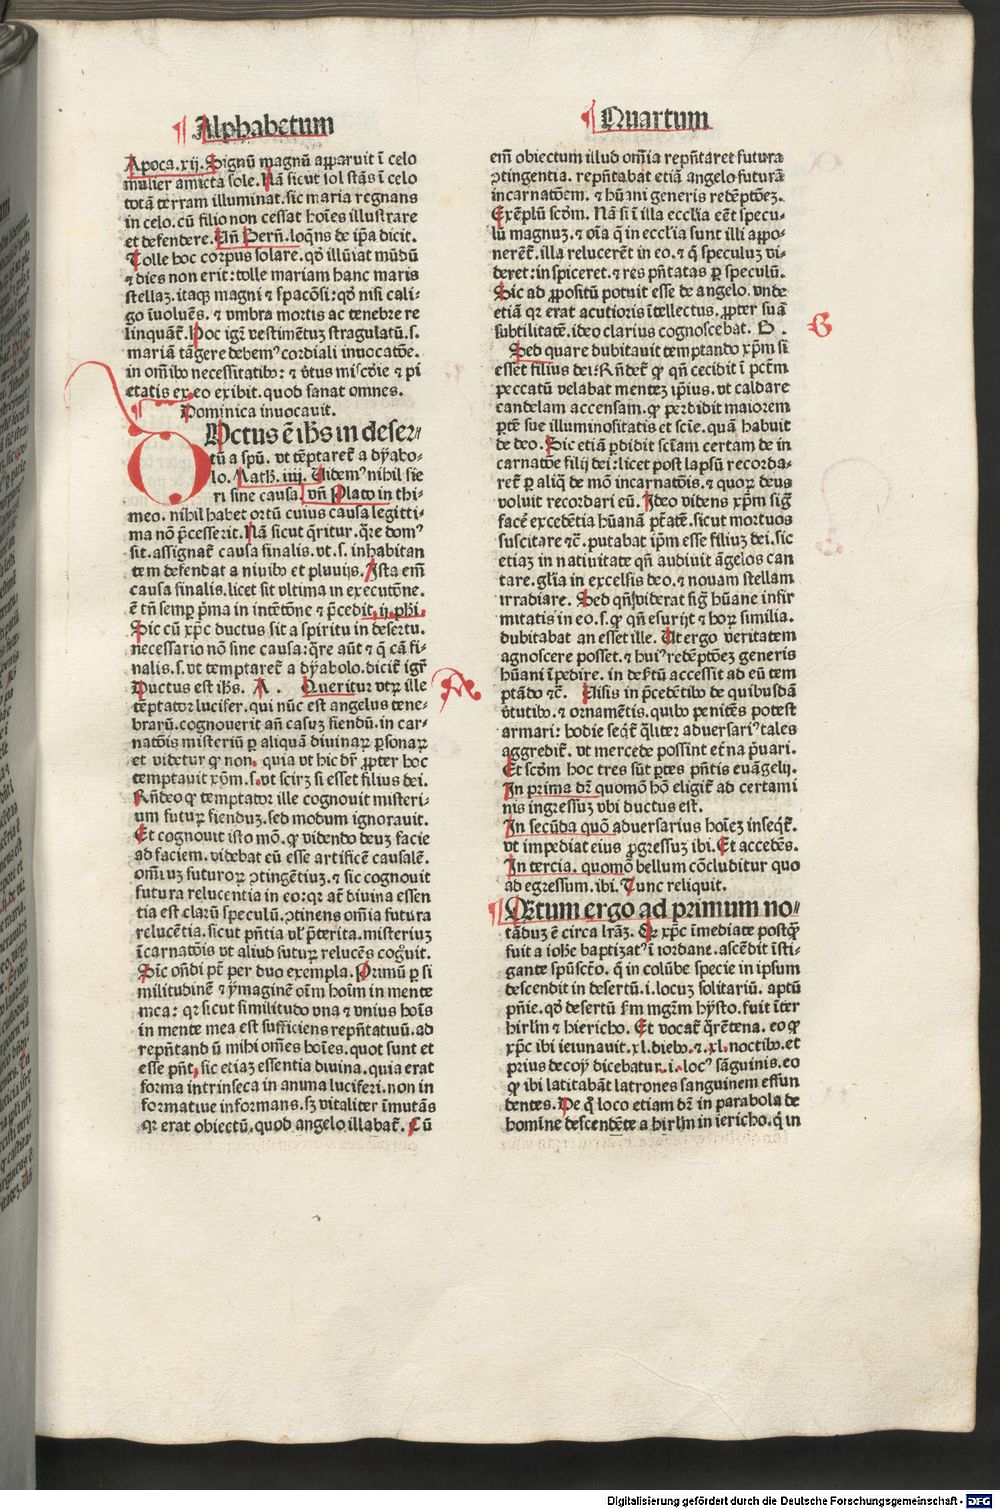 Alphabetum
Apoca.xij. Signū magnū apparuit ī celo
mulier amicta sole. Nā sicut sol stās ī celo
totā terram illuminat. sic maria regnans
in celo. cū filio non cessat hoīes illustrare
et defendere. Un̄ Bern̄. loqn̄s de ip̄a dicit.
Tolle hoc corpus solare. qd̓ illūiat mūdū
⁊ dies non erit: tolle mariam hanc maris
stellaꝫ. itaqꝫ magni ⁊ spacōsi: qd̓ nisi cali-
go īuoluēs. ⁊ vmbra mortis ac tenebre re
linquāt̄. Hoc igr̄ vestimētuꝫ stragulatū. s.
mariā tāgere debemꝰ cordiali inuocatōe.
in om̄ibꝰ necessitatibꝰ: ⁊ v̓tus mīscd̓ie ⁊ pi
etatis ex eo exibit. quod sanat omnes.
Dominica inuocauit.
Dvctus ē ih̄s in deser-
tū a spū. vt tēptaret̄ a dyabo-
lo. Math. iiij. Uidemꝰ nihil fie
ri sine causa. vn̄ Plato in thi-
meo. nihil habet ortū cuius causa legitti-
ma nō p̄cesserit. Nā sicut q̄ritur. q̄re domꝰ
sit. assignat̄ causa finalis. vt. s. inhabitan
tem defendat a niuibꝰ et pluuijs. Ista em̄
causa finalis. licet sit vltima in executōne.
ē tn̄ semꝑ p̄ma in intētōne ⁊ p̄cedit. ij. phi.
Sic cū xp̄c ductus sit a spiritu in desertu.
necessario nō sine causa: q̄re aūt ⁊ q̄ cā fi-
nalis. s. vt temptaret̄ a dyabolo. dicit̄ igr̄
Ductus est ih̄s. A. Queritur vtꝝ ille
tēptator lucifer. qui nūc est angelus tene-
braꝝ. cognouerit an̄ casuꝫ fiendū. in car-
natōis misteriū ꝑ aliquā diuinaꝝ ꝑsonaꝝ
et videtur ꝙ non. quia vt hic dr̄ ꝓpter hoc
temptauit xp̄m. s. vt sciꝝ si esset filius dei.
Rn̄deo ꝙ temptator ille cognouit misteri-
um futuꝝ fienduꝫ. sed modum ignorauit.
Et cognouit isto mō. ꝙ videndo deuꝫ facie
ad faciem. videbat eū esse artificē causalē.
om̄iuꝫ futuroꝝ ꝯtingētiuꝫ. ⁊ sic cognouit
futura relucentia in eo: qꝛ at̄ diuina essen
tia est clarū speculū. ꝯtinens om̄ia futura
relucētia. sicut p̄ntia vl̓ p̄terita. misteriuꝫ
īcarnatōis vt aliud futuꝝ relucēs cog̓uit.
Sic on̄di pt̄ per duo exempla. Primū ꝑ si
militudinē ⁊ ymaginē oīm hoīm in mente
mea: qꝛ sicut similitudo vna ⁊ vnius hoīs
in mente mea est sufficiens repn̄tatiuū. ad
repn̄tand ū mihi om̄es hoīes. quot sunt et
esse pn̄t. sic etiaꝫ essentia diuina. quia erat
forma intrinseca in anima luciferi. non in
formatiue informans. sꝫ vitaliter īmutās
qꝛ erat obiectū. quod angelo illabat̄. Cū
Quartum
em̄ obiectum illud om̄ia repn̄taret futura
ꝯtingentia. repn̄tabat etiā angelo futurā
incarnatōem. ⁊ hūani generis redēptōeꝫ.
Exēplū scdm̄. Nā si ī illa eccl̓ia eēt specu-
lū magnuꝫ. ⁊ oīa q̄ in eccl̓ia sunt illi appo-
nerēt̄. illa relucerēt in eo. ⁊ q̄ speculuꝫ vi-
deret: in spiceret. ⁊ res pn̄tatas ꝑ speculū.
Sic ad ꝓpositū potuit esse de angelo. vnde
etiā qꝛ erat acutioris ītellectus. ꝓpter suā
subtilitatē. ideo clarius cognoscebat. B.
Sed quare dubitauit temptando xp̄m si
esset filius dei: Rn̄det̄ ꝙ qn̄ cecidit ī pctm̄
peccatū velabat menteꝫ ip̄ius. vt caldare
candelam accensam. ꝙ perdidit maiorem
ꝑtē sue illuminositatis et scīe. quā habuit
de deo. Sic etiā ꝑdidit scīam certam de in
carnatōe filij dei: licet post lapsū recorda-
ret̄ ꝑ aliq̄ de mō incarnatōis. ⁊ quoꝝ deus
voluit recordari eū. Ideo videns xp̄m sig̓
facē excedētia hūanā ptātē. sicut mortuos
suscitare ⁊c̄. putabat ip̄m esse filiuꝫ dei. sic
etiaꝫ in natiuitate qn̄ audiuit āgelos can
tare. gl̓ia in excelsis deo. ⁊ nouam stellam
irradiare. Sed qn̄ viderat sig̓ hūane infir
mitatis in eo. s. ꝙ qn̄ esurijt ⁊ hoꝝ similia.
dubitabat an esset ille. Ut ergo veritatem
agnoscere posset. ⁊ huiꝰ redēptōeꝫ generis
hūani īpedire. in def̓tū accessit ad eū tem
ptādo ⁊c̄. Uisis in p̄cedētibꝰ de quibusdā
v̓tutibꝰ. ⁊ ornamētis. quibꝰ penitēs potest
armari: hodie seqt̄ q̄liter aduersariꝰ tales
aggredit̄. vt mercede possint et̓na p̄uari.
Et scdm̄ hoc tres sūt ꝑtes pn̄tis euāgelij.
In prima dr̄ quomō hō eligit̄ ad certami
nis ingressuꝫ vbi ductus est.
In secūda quō aduersarius hoīeꝫ inseqt̄.
vt impediat eius ꝓgressuꝫ ibi. Et accedēs.
In tercia. quomō bellum cōcluditur quo
ad egressum. ibi. Tunc reliquit.
Qvtum ergo ad primum no-
tāduꝫ ē circa lr̄aꝫ. Qꝛ xp̄c īmediate postqꝫ
fuit a ioh̄e baptizatꝰ ī iordane. ascēdit īsti-
gante spūscto. q̄ in colūbe specie in ipsum
descendit in desertū. i. locuꝫ solitariū. aptū
pn̄ie. qd̓ desertū scdm̄ mgr̄m hysto. fuit īter
hirl̄m ⁊ hiericho. Et vocat̄ q̄rētena. eo ꝙ
xp̄c ibi ieiunauit. xl. diebꝰ. ⁊. xl. noctibꝰ. et
prius decoꝫ dicebatur. i. locꝰ sāguinis. eo
ꝙ ibi latitabāt latrones sanguinem effun
dentes. De q̄ loco etiam dr̄ in parabola de
homīne descendēte a hirl̄m in iericho. q̄ in
A
B
Digitalisierung gefördert durch die Deutsche Forschungsgemeinschaft - DFG